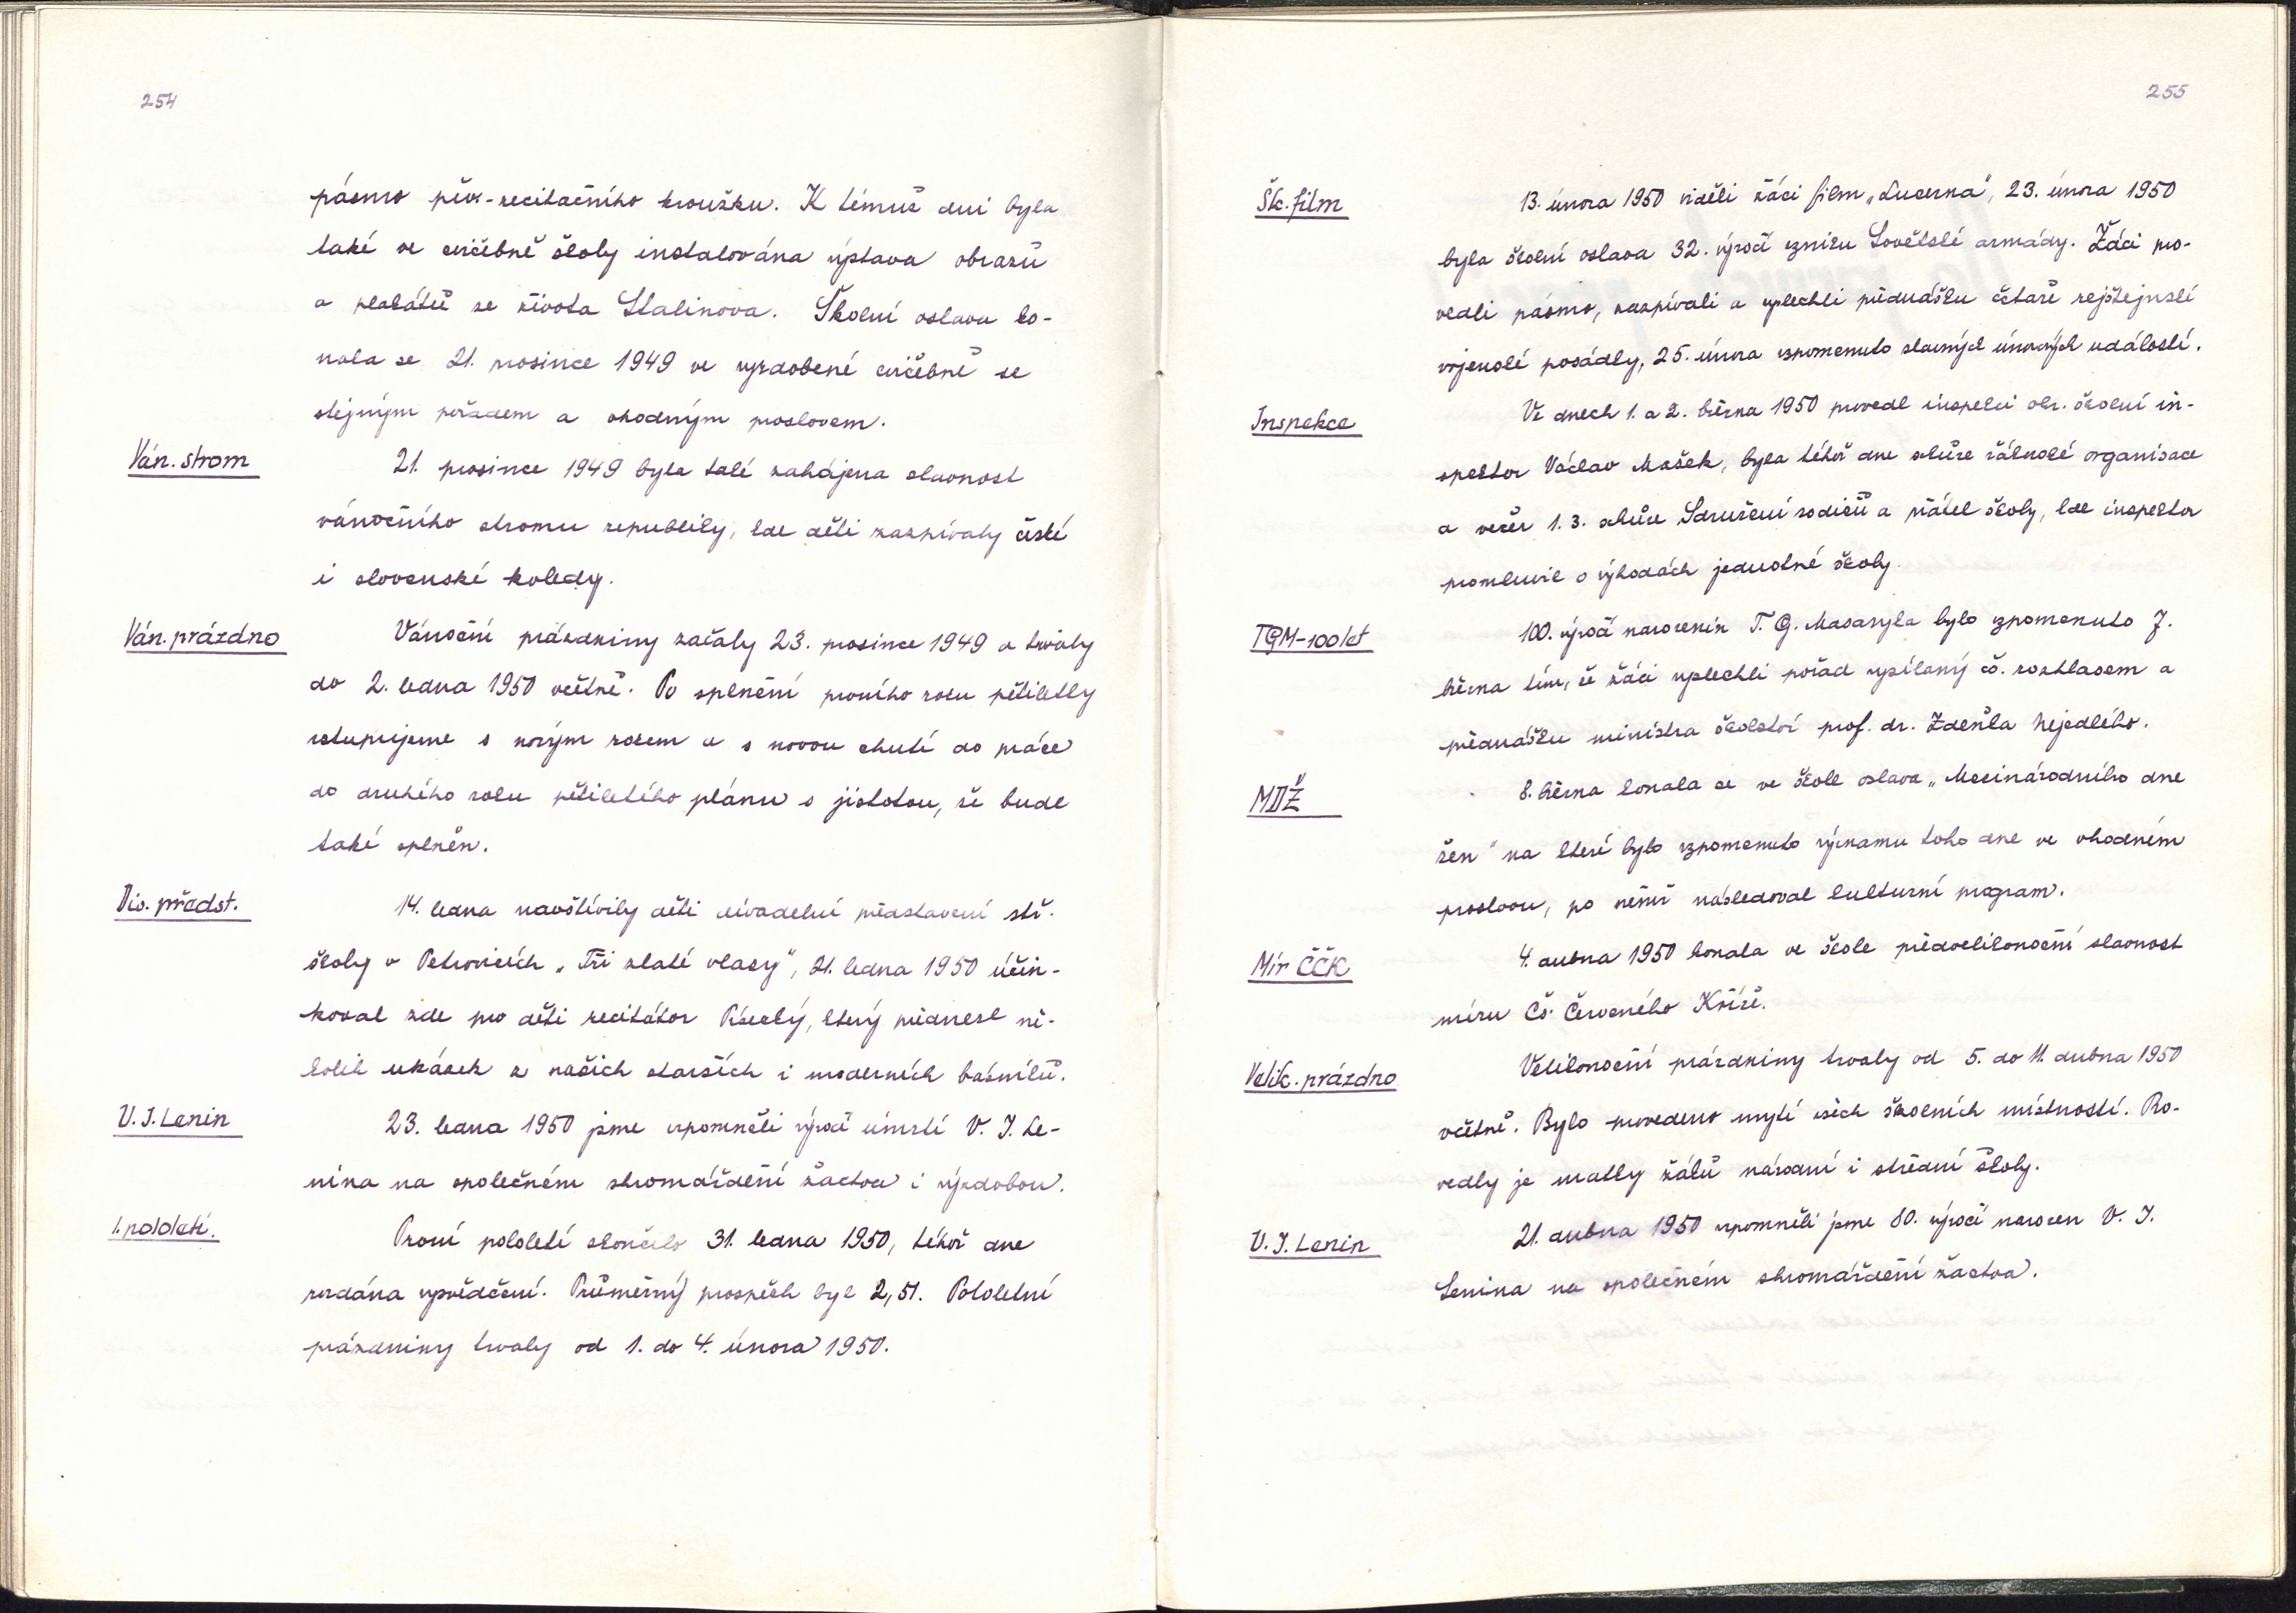 254
pásmo pěv.-recitačního kroužku. K témuž dni byla
také ve cvičebně školy instalována výstava obrazů
a plakátů ze života Stalinova. Školní oslava ko-
nala se 21. prosince 1949 ve vyzdobené cvičebně se
stejným pořadem a vhodným proslovem.
Ván. strom
21. prosince 1949 byla také zahájena slavnost
vánočního stromu republiky, kde děti zazpívaly české
i slovenské koledy.
Ván. prázdno
Vánoční prázdniny začaly 23. prosince 1949 a trvaly
do 2. ledna 1950 včetně. Po splnění prvního roku pětiletky
vstupujeme s novým rokem a s novou chutí do práce
do druhého roku pětiletého plánu s jistotou, že bude
také splněn.
Div. předst.
14. ledna navštívily děti divadelní představení stř.
školy v Petrovicích „Tři zlaté vlasy", 21. ledna 1950 účin-
koval zde pro děti recitátor Písecký, který přednesl ně-
kolik ukázek z našich starších i moderních básníků.
V. I. Lenin
23. ledna 1950 jsme vzpomněli výročí úmrtí V. I. Le-
nina na společném shromáždění žactva i výzdobou.
1. pololetí.
První pololetí skončilo 31. ledna 1950, téhož dne
rozdána vysvědčení. Průměrný prospěch byl 2,51. Pololetní
prázdniny trvaly od 1. do 4. února 1950.
255
Šk. film
13. února 1950 viděli žáci film „Lucerna", 23. února 1950
byla školní oslava 32. výročí vzniku Sovětské armády. Žáci pro-
vedli pásmo, zazpívali a vyslechli přednášku četaře rejštejnské
vojenské posádky, 25. února vzpomenuto slavných únorových událostí.
Inspekce
Ve dnech 1. a 2. března 1950 provedl inspekci okr. školní in-
spektor Václav Mašek, byla téhož dne schůze žákovské organisace
a večer 1. 3. schůze Sdružení rodičů a přátel školy, kde inspektor
promluvil o výhodách jednotné školy.
TGM-100 let
100. výročí narozenin T. G. Masaryka bylo vzpomenuto 7.
března tím, že žáci vyslechli pořad vysílaný čs. rozhlasem a
přednášku ministra školství prof. dr. Zdeňka Nejedlého.
MDŽ
8. března konala se ve škole oslava „Mezinárodního dne
žen" na které bylo vzpomenuto významu toho dne ve vhodném
proslovu, po němž následoval kulturní program.
Mír ČČK
4. dubna 1950 konala ve škole předvelikonoční slavnost
míru Čs. Červeného Kříže.
Velik. prázdno
Velikonoční prázdniny trvaly od 5. do 11. dubna 1950
včetně. Bylo provedeno mytí všech školních místností. Pro-
vedly je matky žáků národní i střední školy.
V. I. Lenin
21. dubna 1950 vzpomněli jsme 80. výročí narozen V. I.
Lenina na společném shromáždění žactva.